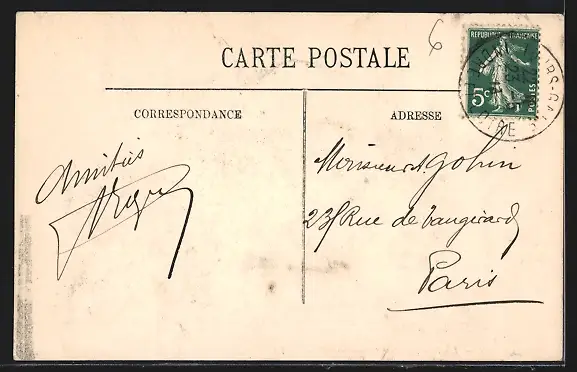 6
CARTE POSTALE
REPUBLIQUE FRANÇAISE
5c
POSTES
CORRESPONDANCE
ADRESSE
Amitiés
Monsieur A. Gohin
23 Rue de Vaugirard
Paris